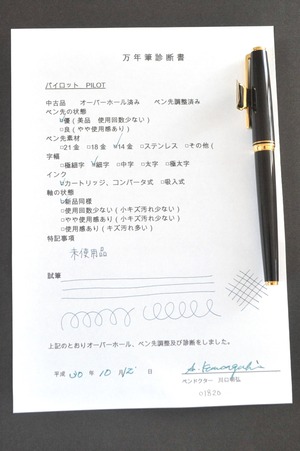 万年筆診断書
パイロット　PILOT
中古品　オーバーホール済み　ペン先調整済み
ペン先の状態
☑優（美品　使用回数少ない）
□良（やや使用感あり）
ペン先素材
□21金　□18金　☑14金　□ステンレス　□その他（
字幅
□極細字　☑細字　□中字　□太字　□極太字
インク
☑カートリッジ、コンバータ式　□吸入式
軸の状態
☑新品同様
□使用回数少ない（小キズ汚れ少ない）
□やや使用感あり（小キズ汚れ少ない）
□使用感あり（キズ汚れ多い）
特記事項
未使用品
試筆
上記のとおりオーバーホール、ペン先調整及び診断をしました。
平成　30　年　10　月　12　日
ペンドクター　川口
01820